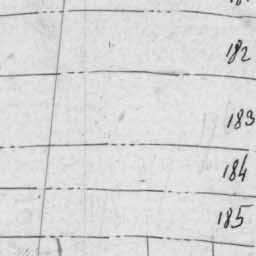 182
183
184
185